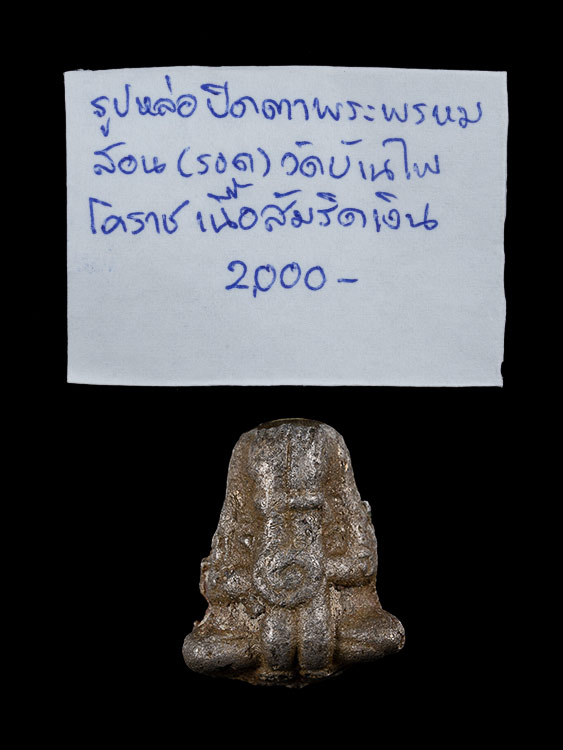 รูปหล่อปิดตาพระพรหม
สอน (รอด) วัดบ้านไพ
โคราช เนื้อสัมริดเงิน
2,000 -